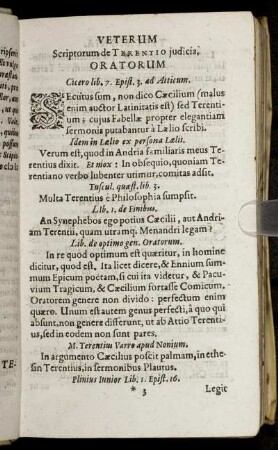 VETERUM
Scriptorum de TERENTIO judicia,
ORATORUM
Cicero lib. 7. Epist. 3. ad Atticum.
SEcutus sum, non dico Cæcilium (malus
enim auctor Latinitatis est) sed Terenti-
um: cujus Fabellæ propter elegantiam
sermonis putabantur à Lælio scribi.
Idem in Lælio ex persona Lælii.
Verum est, quod in Andria familiaris meus Te-
rentius dixit. Et mox: In obsequio, quoniam Te-
rentiano verbo lubenter utimur, comitas adsit.
Tuscul. quæst. lib. 3.
Multa Terentius è Philosophia sumpsit.
Lib. 1. de Finibus.
An Synephebos ego potius Cæcilii, aut Andri-
am Terentii, quam utramq. Menandri legam?
Lib. de optimo gen. Oratorum.
In re quod optimum est quæritur, in homine
dicitur, quod est, Ita licet dicere, & Ennium sum-
mum Epicum poëtam, si cui ita videtur, & Pacu-
vium Tragicum, & Cæcilium fortasse Comicum.
Oratorem genere non divido: perfectum enim
quæro. Unum est autem genus perfecti, à quo qui
absunt, non genere differunt, ut ab Attio Terenti-
us, sed in eodem non sunt pares.
M. Terentius Varro apud Nonium.
In argumento Cæcilius poscit palmam, in ethe-
sin Terentius, in sermonibus Plautus.
Plinius Iunior Lib. 1. Epist. 16.
* 3 Legit